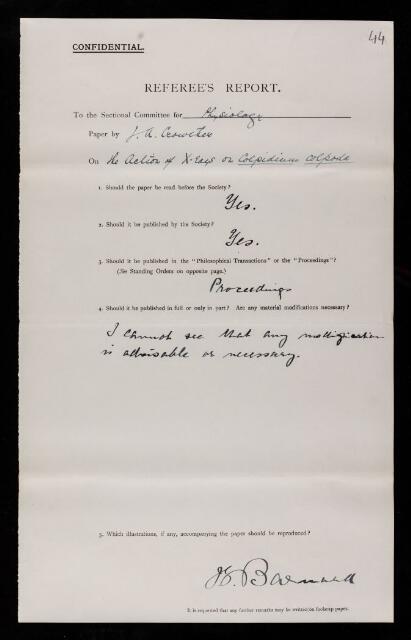 44
CONFIDENTIAL.
REFEREE'S REPORT.
To the Sectional Committee for Physiology
Paper by J. A. Crowther
On the Action of X-Rays on Colpidium colpoda
1. Should the paper be read before the Society?
Yes.
2. Should it be published by the Society?
Yes.
3. Should it be published in the "Philosophical Transactions" or the "Proceedings"?
(See Standing Orders on opposite page.)
Proceedings
4. Should it be published in full or only in part? Are any material modifications necessary?
I cannot see that any modification
is advisable or necessary.
5. Which illustrations, if any, accompanying the paper should be reproduced?
J E. Barnard
It is requested that any further remarks may be written on foolscap paper.